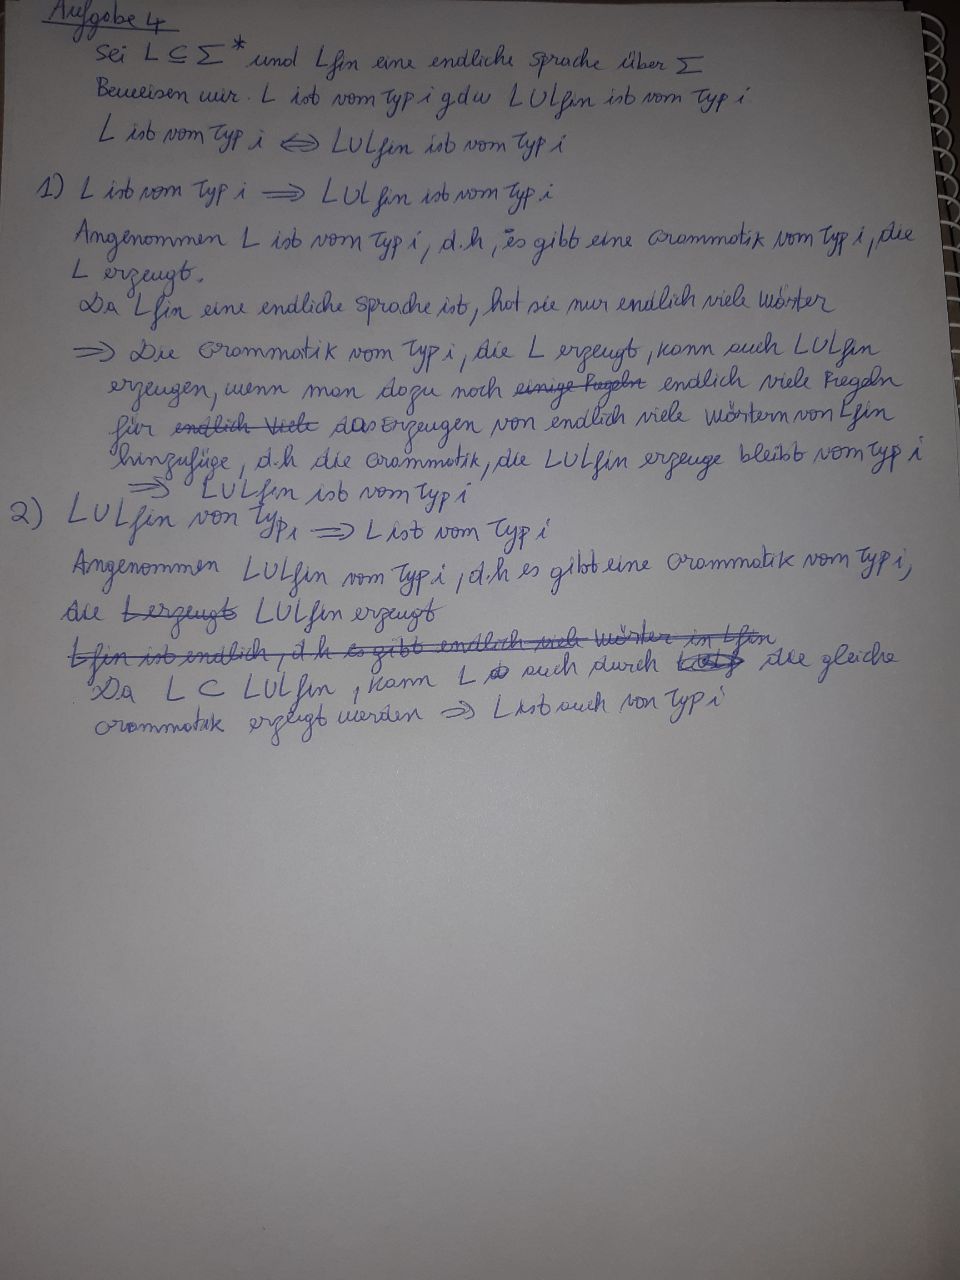 Aufgabe 4
Sei L ⊆ Σ* und Lfin eine endliche Sprache über Σ
Beweisen wir. L ist vom Typ i gdw L∪Lfin ist vom Typ i
L ist vom Typ i ⟺ L∪Lfin ist vom Typ i
1) L ist vom Typ i ⟹ L∪Lfin ist vom Typ i
Angenommen L ist vom Typ i, d.h, es gibt eine Grammatik vom Typ i, die
L erzeugt.
Da Lfin eine endliche Sprache ist, hat sie nur endlich viele Wörter
⟹ Die Grammatik vom Typ i, die L erzeugt, kann auch L∪Lfin
erzeugen, wenn man dazu noch einige Regeln endlich viele Regeln
für endlich viele das Erzeugen von endlich viele Wörtern von Lfin
hinzufüge, d.h die Grammatik, die L∪Lfin erzeuge bleibt vom Typ i
⟹ L∪Lfin ist vom Typ i
2) L∪Lfin von Typ i ⟹ L ist vom Typ i
Angenommen L∪Lfin vom Typ i, d.h es gibt eine Grammatik vom Typ i,
die L erzeugt L∪Lfin erzeugt
Lfin ist endlich, d.h es gibt endlich viele Wörter in Lfin
Da L ⊂ L∪Lfin, kann L auch durch die gleiche
Grammatik erzeugt werden ⟹ L ist auch von Typ i